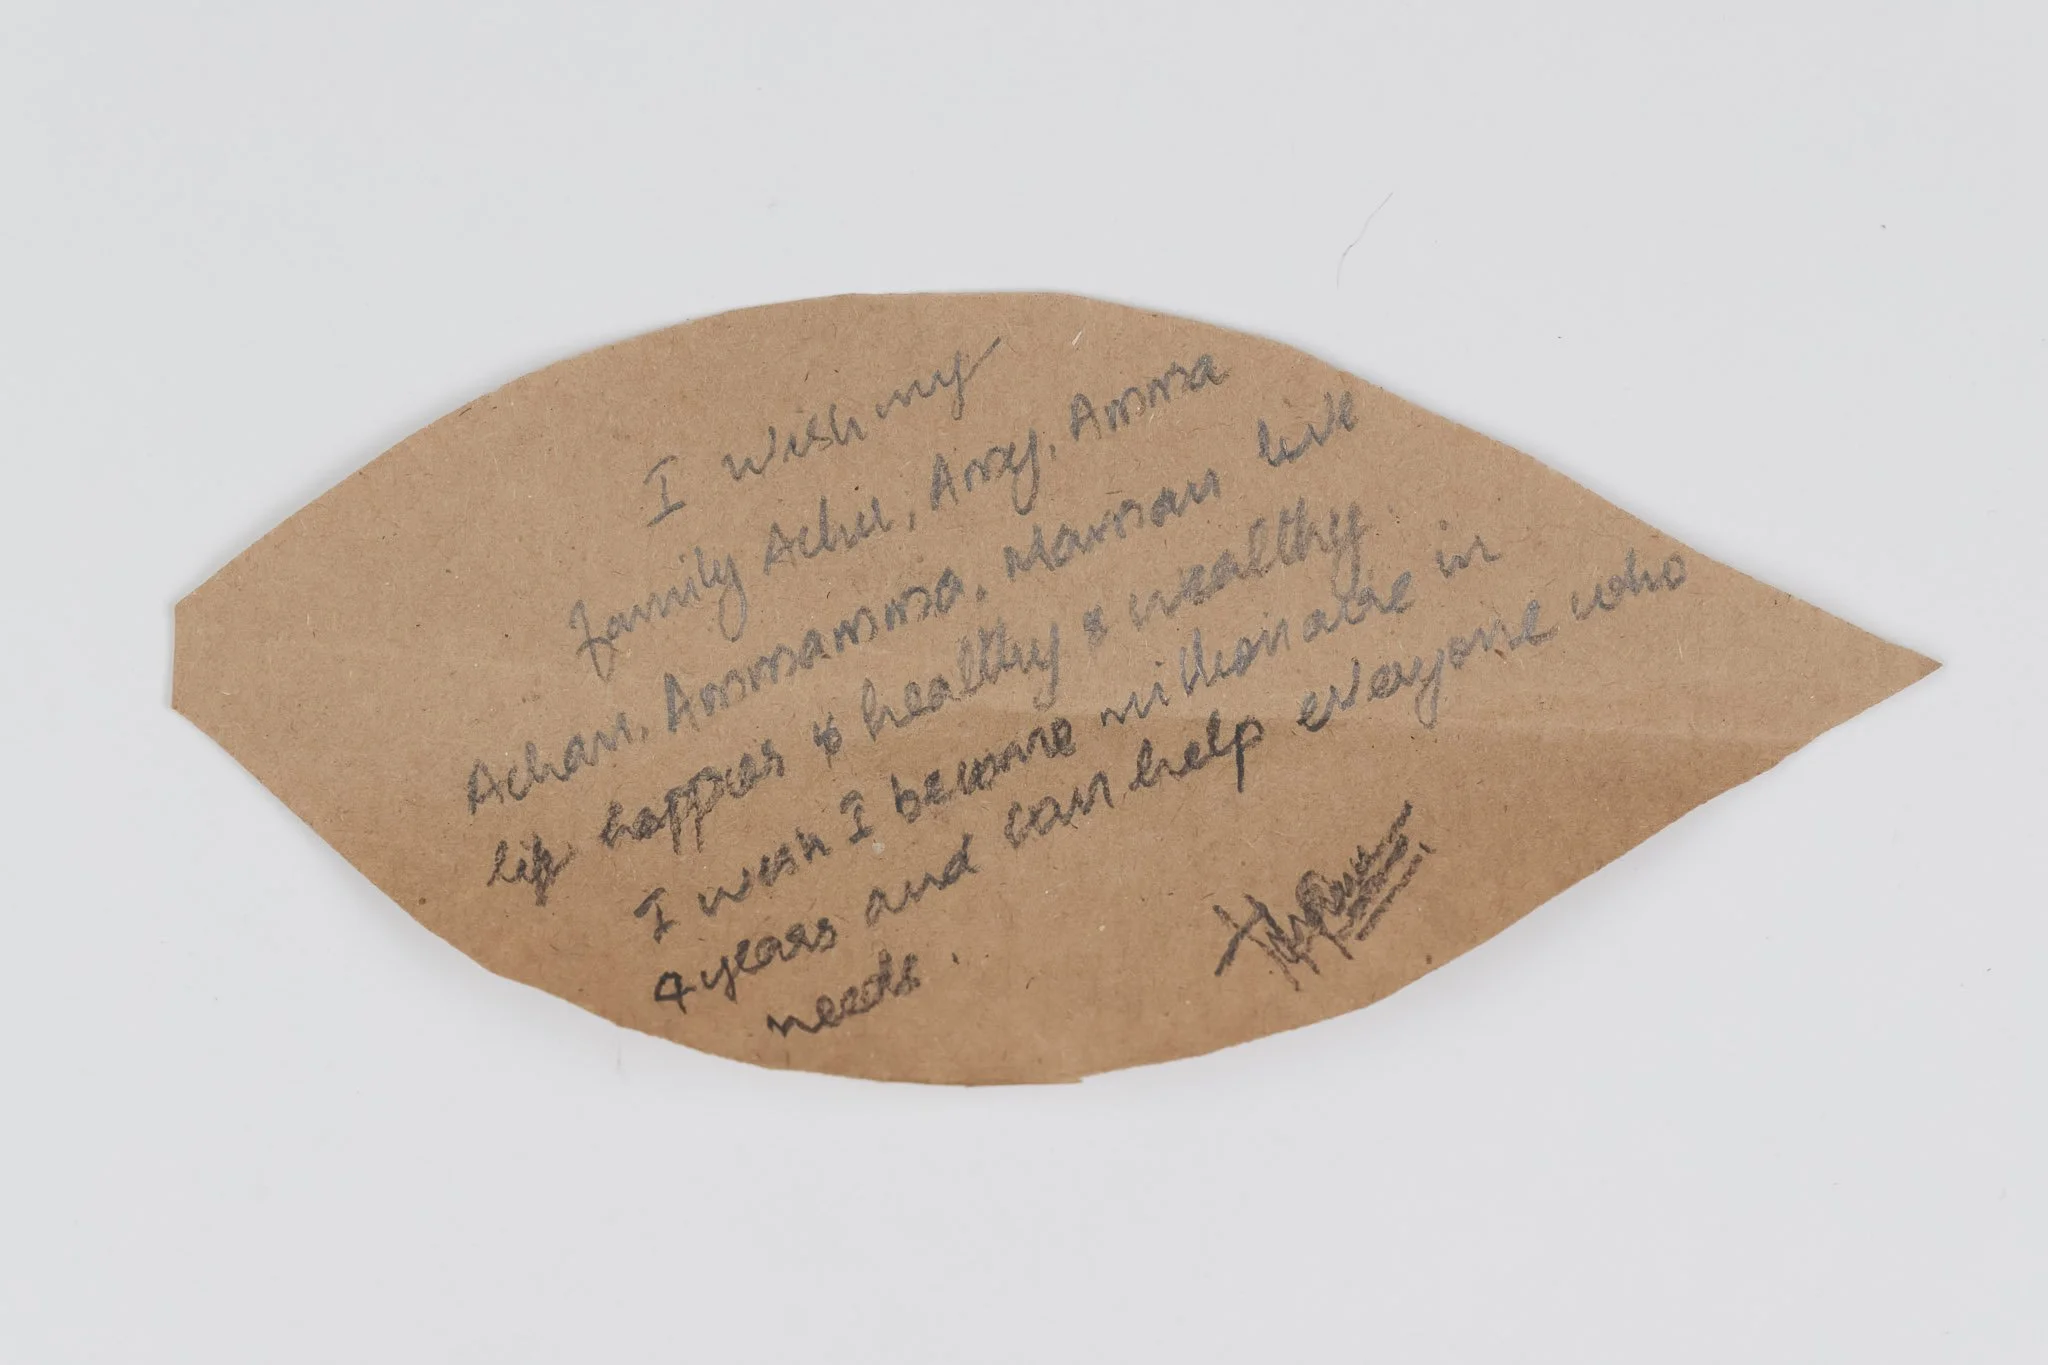 I wish my
family Achu, Amy, Amma
Achan, Ammamma, Maman live
life happier & healthy & wealthy
I wish I become millionaire in
4 years and can help everyone who
needs.